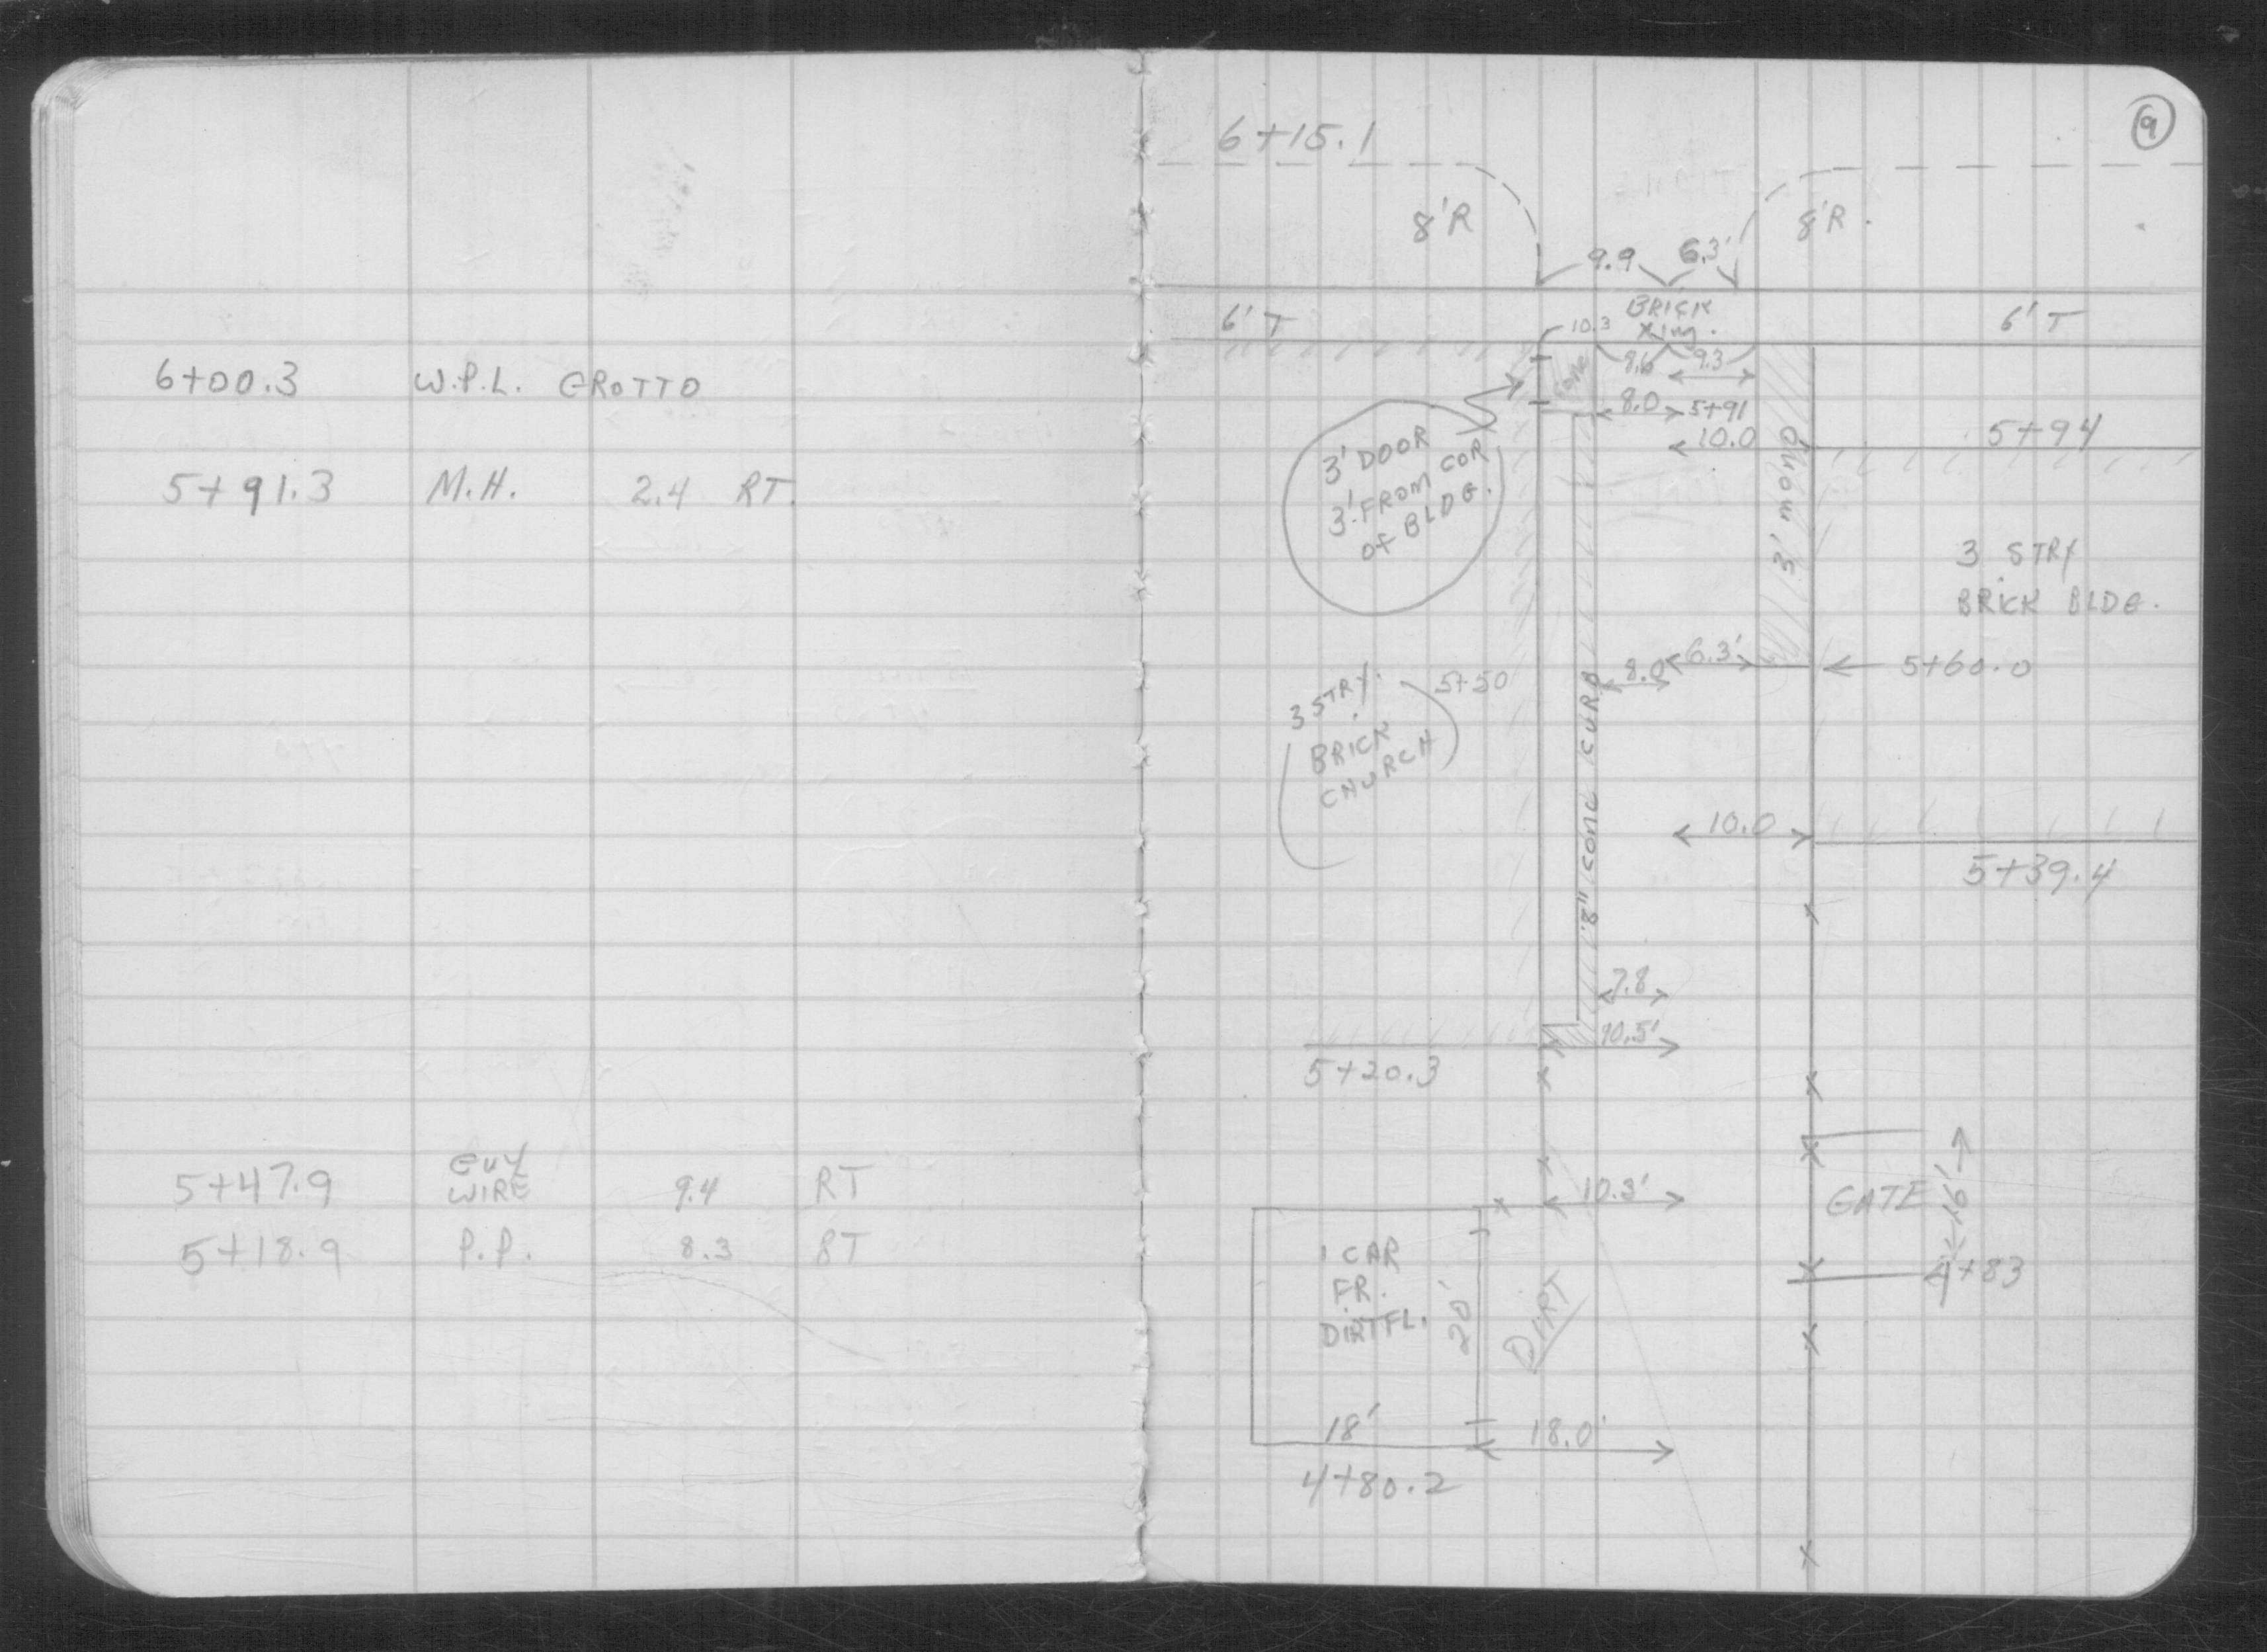 6+00.3 W.P.L. GROTTO
5+91.3 M.H. 2.4 RT.
5+47.9 GUY WIRE 9.4 RT
5+18.9 P.P. 8.3 RT
9
6+15.1
8'R
8'R.
9.9 6.3'
6'T
BRICK
Xing.
6'T
10.3
CONC
8.6 9.3
8.0 5+91
10.0
5+94
3' DOOR
3' FROM COR
of BLDG.
3'
3 STRY
BRICK BLDG.
8.0 6.3'
5+60.0
5+50
3 STRY.
BRICK
CHURCH
8" CONC CURB
10.0
5+39.4
7.8
10.5'
5+20.3
10.3'
GATE
16'
4+83
1 CAR
FR.
DIRT FL.
20'
DIRT
18'
18.0'
4+80.2